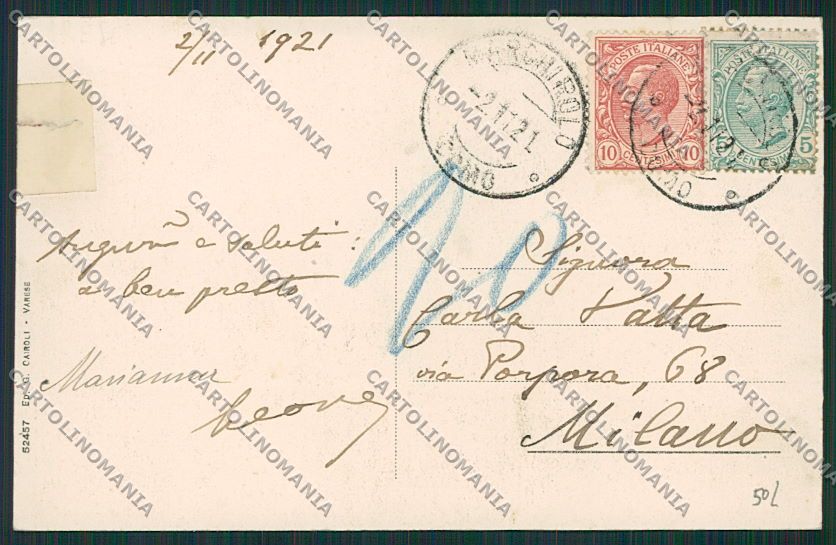 2/11 1921
MARCHIROLO
-2.11.21
COMO
POSTE ITALIANE
10 CENTESIMI 10
POSTE ITALIANE
CENTESIMI 5
Auguri e saluti:
a ben presto
Marianna
Leone
20
Signora
Carla Vatta
via Porpora, 68
Milano
50L
52457 ED. G. CAIROLI - VARESE
CARTOLINOMANIA